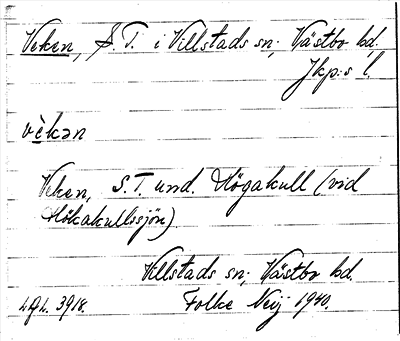 Veken, S.T. i Villstads sn; Västbo hd.
Jkp:s l.
vèkən
Veken, S.T. und. Högakull (vid
Hökakullssjön)
Villstads sn; Västbo hd.
L.G.L. 3918. Folke Neij 1940.